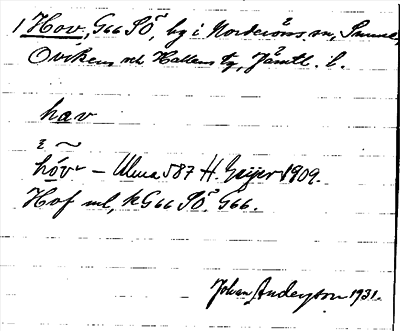 1 Hov, G66 SÖ, by i Norderöns sn, Sunne,
Ovikens och Hallens tg, Jämtl. l.
hav
hóv – Ulma 587 H. Geijer 1909.
Hof ml, k G66 SÖ. G66.
Johan Anderson 1931.